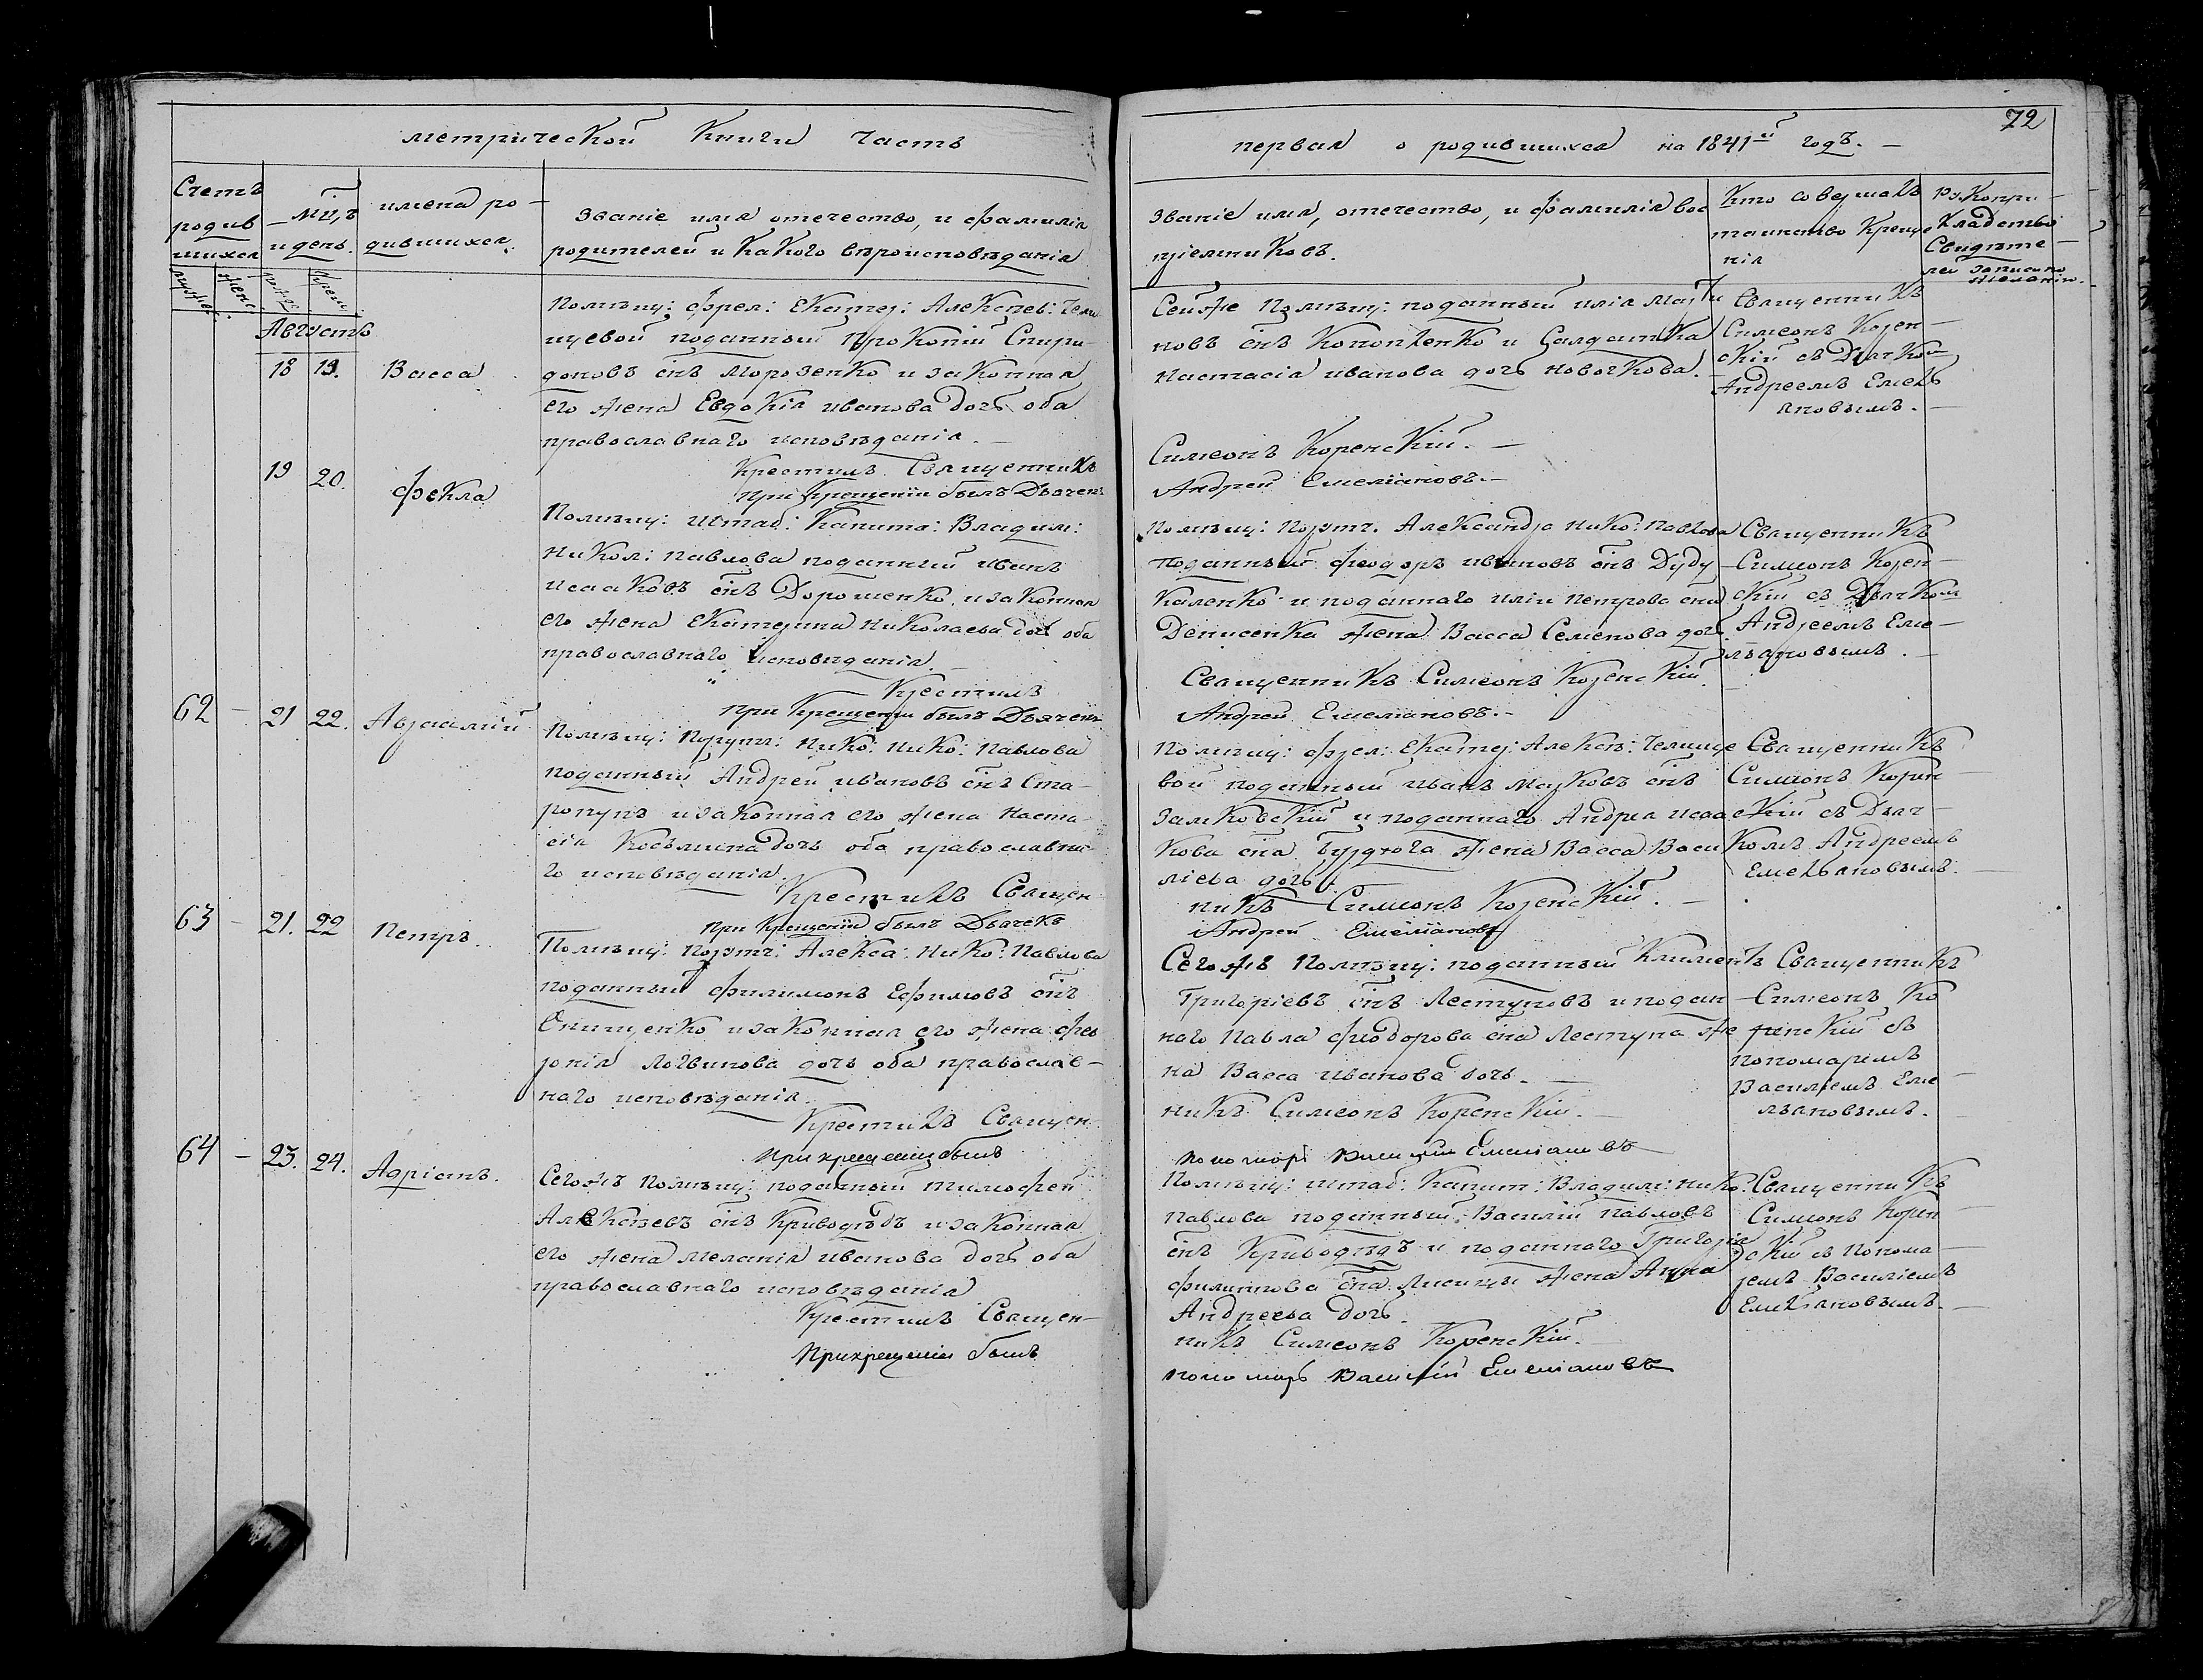 72
метрической книги часть
первая о родившихся на 1841й годъ. —
Счетъ родившихся
мужес: женс:
мцъ и день.
рожд: крещ:
имена родившихся.
Званіе имя отечество, и фамилія
родителей и какого вѣроисповѣданія
Званіе имя, отечество, и фамилія вос
пріемниковъ.
Кто совершалъ
таинство креще
нія
Рукопри-
кладство
свидѣте-
лей записано
Августъ
18 19. Васса
Помѣщ: фрел: Екатер: Алексѣев:
щевой поданный Прокопій Спири-
доновъ снъ Морозенко и законная
его жена Евдокія иванова дочь оба
православнаго исповѣданія. —
Крестилъ Священникъ
При крещеніи былъ Дьячекъ
Сейже Помѣщ: поданный илія
новъ снъ Кононенко и Салдатка
Настасія иванова дочь
Симеонъ Коренскій. —
Андрей Емеліановъ. —
Священникъ
Симеонъ Корен-
скій съ Дьячком
Андреемъ Емель
яновымъ. —
19 20. Фекла
Помѣщ: Штаб: Капита: Владим:
Никол: Павлова поданный иванъ
исааковъ снъ Дорошенко, и законная
его жена Екатерина Николаева дочь оба
православнаго исповѣданія. —
Крестилъ
При крещеніи былъ Дьячекъ
Помѣщ: Поруч. Александра Нико: Павлова
поданный Феодоръ ивановъ снъ Дуду-
каленко и поданнаго иліи Петрова сна
Денисенка жена Васса Семенова доч.
Священникъ Симеонъ Коренскій —
Андрей Емеліановъ. —
Священникъ
Симеонъ Корен-
скій съ Дьячком
Андреемъ Еме-
льяновымъ. —
62 — 21 22. Авраамій
Помѣщ: Поруч: Нико: Нико: Павлова
поданный Андрей ивановъ снъ Ста-
ропупъ и законная его жена Наста-
сія Косьмина дочь оба православна-
го исповѣданія.
Крестилъ Священ-
При крещеніи былъ Дьячекъ
Помѣщ: фрел: Екатер: Алексѣ: Челище
вой поданный иванъ Марковъ снъ
Замковскій и поданнаго Андрея исаа
кова сна Бурдюга жена Васса Васи
ліева дочь.
никъ Симеонъ Коренскій. —
Андрей Емеліановъ
Священникъ
Симеонъ Корен
скій съ Дьяч-
комъ Андреемъ
Емельяновымъ. —
63 — 21. 22 Петръ.
Помѣщ: Поруч: Алекса: Нико: Павлова
поданный Филимонъ Ефимовъ снъ
Онищенко и законная его жена Фев
ронія Логвинова дочь оба православ-
наго исповѣданія.
Крестилъ Священ-
При крещеніи былъ
Сегожъ Помѣщ: поданный Климентъ
Григоріевъ снъ Лестуновъ и подан-
наго Павла Феодорова сна Лестуна же
на Васса иванова дочь. —
никъ Симеонъ Коренскій. —
пономарь Василій Емеліановъ
Священникъ
Симеонъ Ко
ренскій съ
пономаремъ
Василіемъ Еме-
льяновымъ. —
64 — 23. 24. Адріанъ.
Сегожъ Помѣщ: поданный Тимофей
Алексѣевъ снъ Криводѣдъ и законная
его жена Меланія иванова дочь оба
православнаго исповѣданія
Крестилъ Священ-
При крещеніи былъ
Помѣщ: Штаб: Капит: Владим: Нико:
Павлова поданный Василій Павловъ
снъ Криводѣдъ и поданнаго Григорія
Филипова сна Лисицы жена Анна
Андреева дочь.
никъ Симеонъ Коренскій. —
пономарь Василій Емеліановъ
Священникъ
Симеонъ Корен-
скій съ понома-
ремъ Василіемъ
Емельяновымъ. —